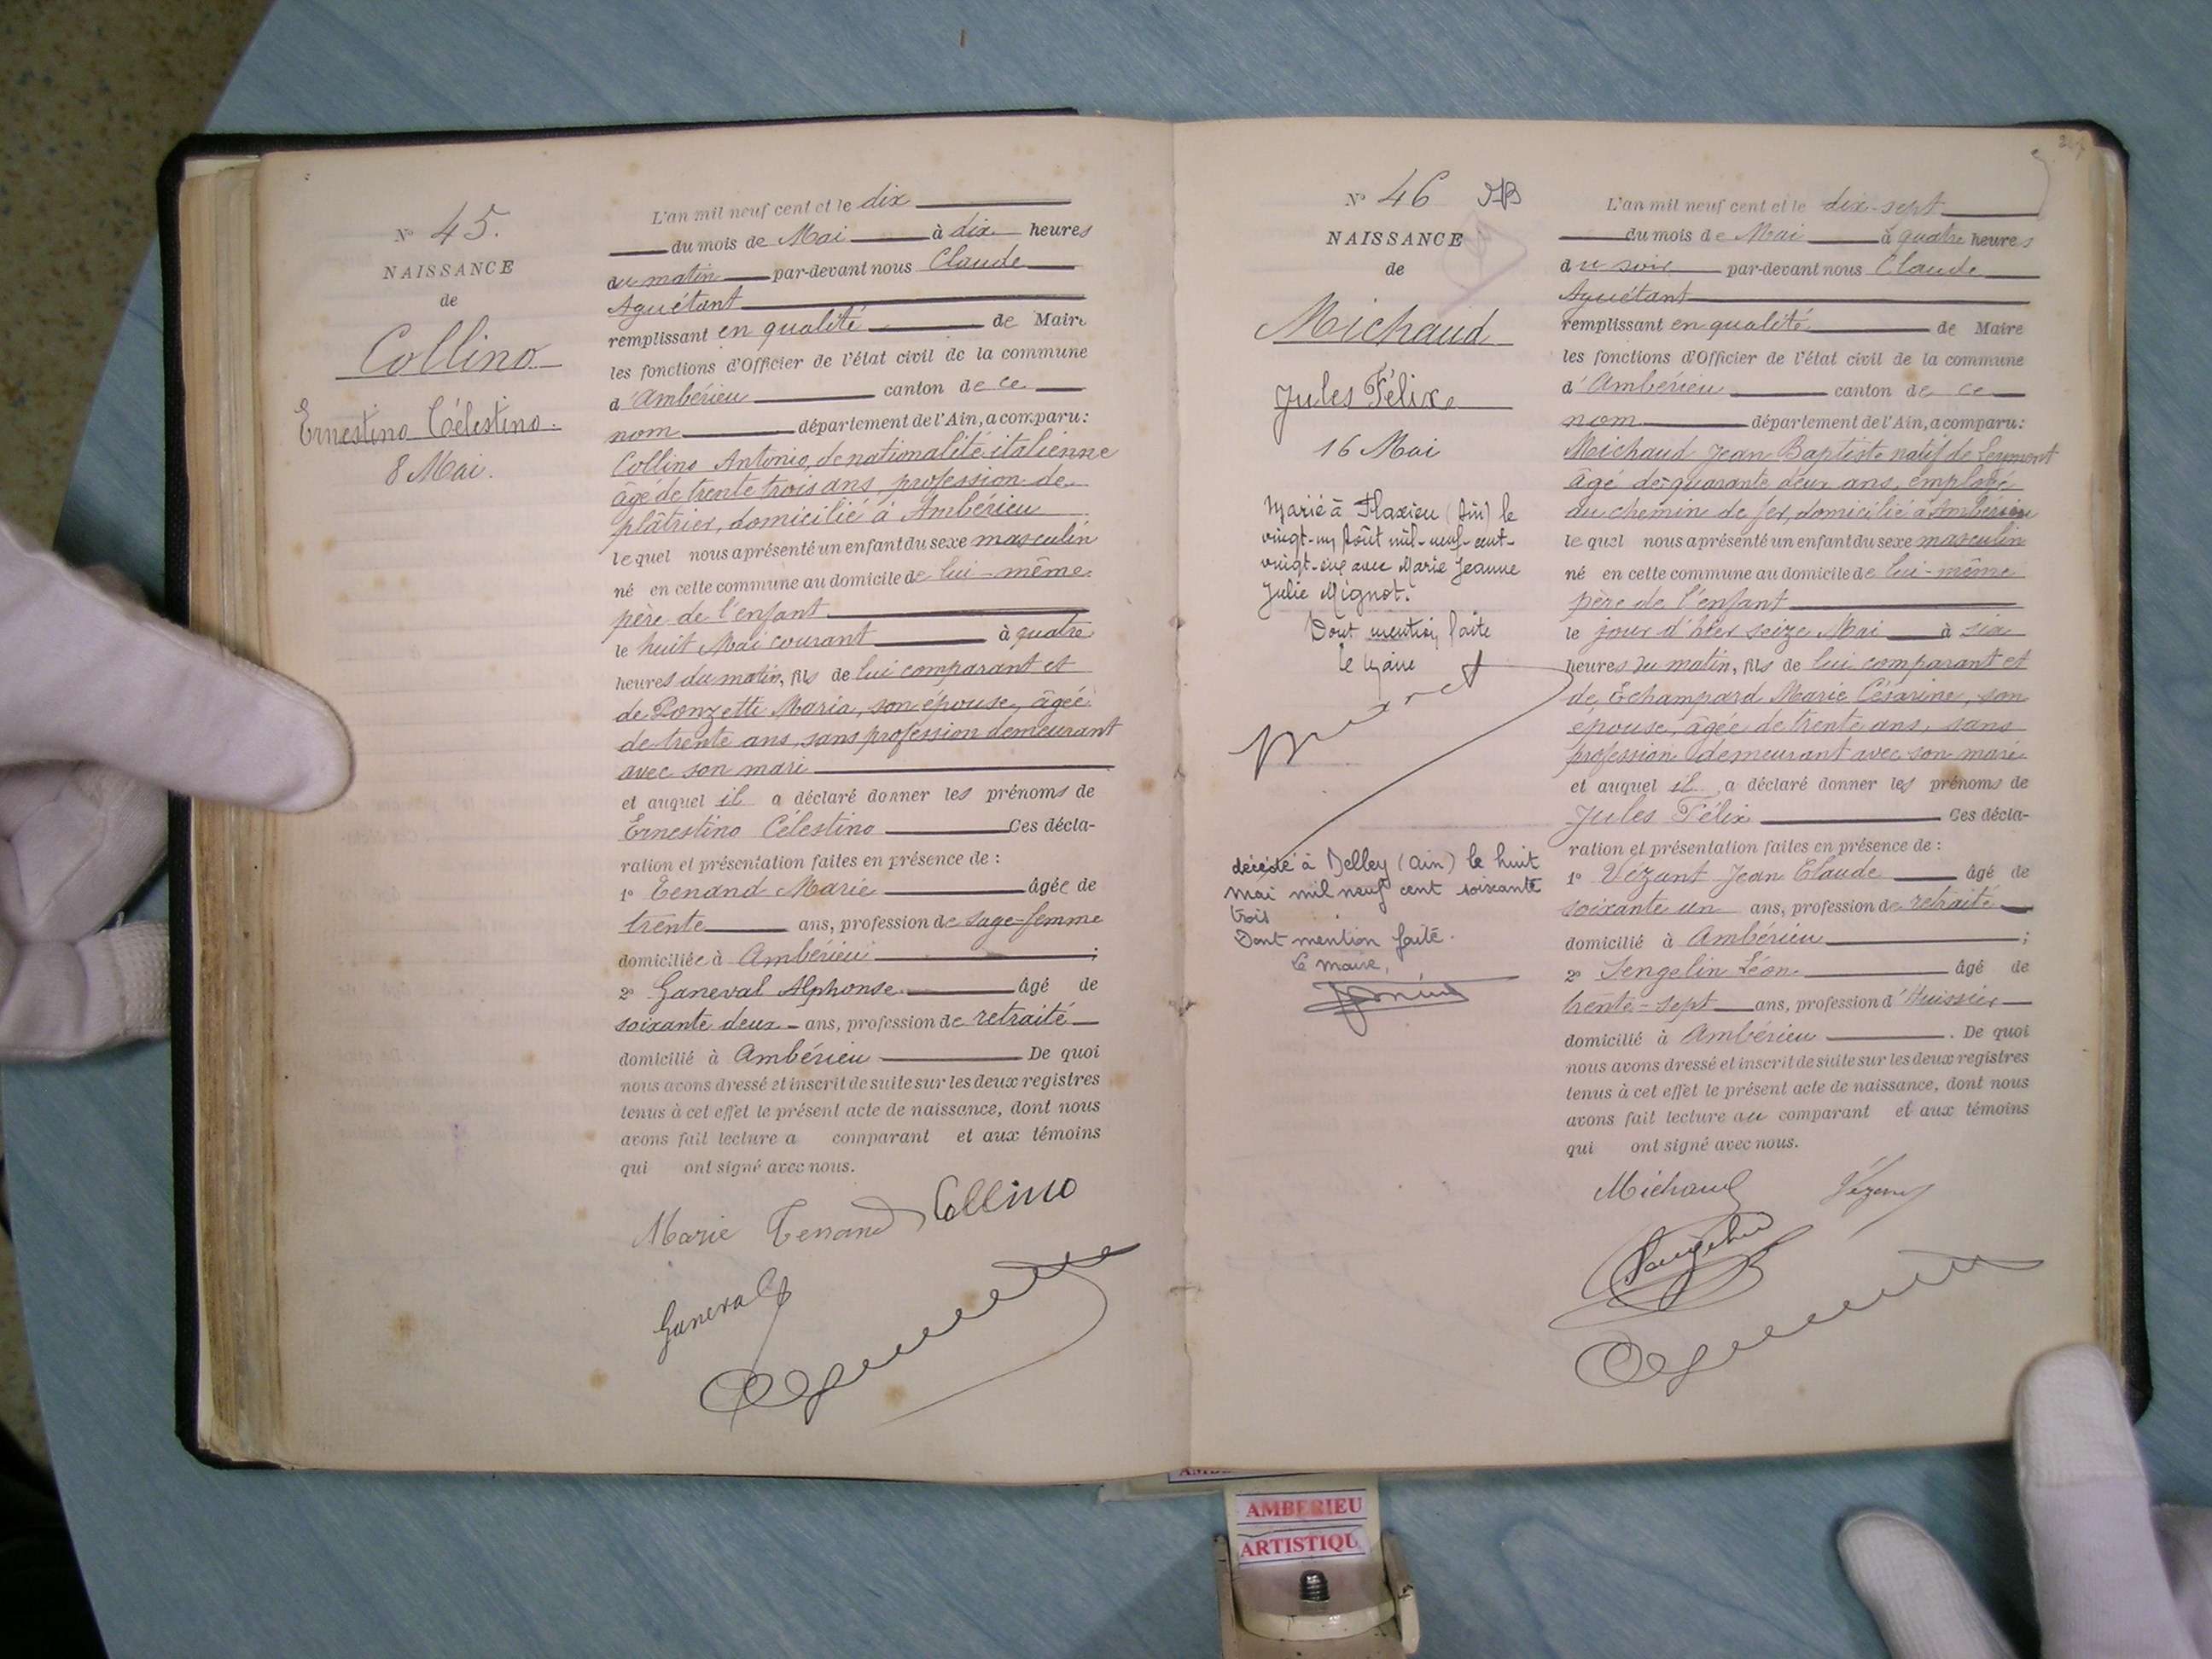 N° 45.
NAISSANCE
de
Collino
Ernestino Célestino.
8 Mai.
L'an mil neuf cent et le dix
du mois de Mai à dix heures
du matin par-devant nous Claude
Aguétant
remplissant en qualité de Maire
les fonctions d'Officier de l'état civil de la commune
d'Ambérieu canton de ce
nom département de l'Ain, a comparu:
Collino Antonio, de nationalité italienne
âgé de trente trois ans, profession de
plâtrier, domicilié à Ambérieu
lequel nous a présenté un enfant du sexe masculin
né en cette commune au domicile de lui-même
père de l'enfant
le huit Mai courant à quatre
heures du matin, fils de lui comparant et
de Ponzetti Maria, son épouse, âgée
de trente ans, sans profession demeurant
avec son mari
et auquel il a déclaré donner les prénoms de
Ernestino Célestino Ces décla-
ration et présentation faites en présence de :
1° Tenand Marie âgée de
trente ans, profession de sage-femme
domiciliée à Ambérieu ;
2° Ganeval Alphonse âgé de
soixante deux ans, profession de retraité
domicilié à Ambérieu De quoi
nous avons dressé et inscrit de suite sur les deux registres
tenus à cet effet le présent acte de naissance, dont nous
avons fait lecture a comparant et aux témoins
qui ont signé avec nous.
Marie Tenand Collino
Ganeval
Aguétant
N° 46 JB
NAISSANCE
de
Michaud
Jules Félix
16 Mai
Marié à Flaxieu (Ain) le
vingt-un Août mil-neuf-cent-
vingt- avec Marie Jeanne
Julie Mignot.
Dont mention faite
le Maire
décédé à Belley (Ain) le huit
mai mil neuf cent soixante
trois
Dont mention faite.
Le Maire,
L'an mil neuf cent et le dix-sept
du mois de Mai à quatre heures
du soir par-devant nous Claude
Aguétant
remplissant en qualité de Maire
les fonctions d'Officier de l'état civil de la commune
d'Ambérieu canton de ce
nom département de l'Ain, a comparu:
Michaud Jean Baptiste natif de Leyment
âgé de quarante deux ans, employé
du chemin de fer, domicilié à Ambérieu
lequel nous a présenté un enfant du sexe masculin
né en cette commune au domicile de lui-même
père de l'enfant
le jour d'hier seize Mai à six
heures du matin, fils de lui comparant et
de Echampard Marie Césarine, son
épouse, âgée de trente ans, sans
profession demeurant avec son mari
et auquel il a déclaré donner les prénoms de
Jules Félix Ces décla-
ration et présentation faites en présence de :
1° Vézant Jean Claude âgé de
soixante un ans, profession de retraité
domicilié à Ambérieu ;
2° Sengelin Léon âgé de
trente-sept ans, profession d'Huissier
domicilié à Ambérieu . De quoi
nous avons dressé et inscrit de suite sur les deux registres
tenus à cet effet le présent acte de naissance, dont nous
avons fait lecture au comparant et aux témoins
qui ont signé avec nous.
Michaud Vézant
Sengelin
Aguétant
AMBERIEU
ARTISTIQU